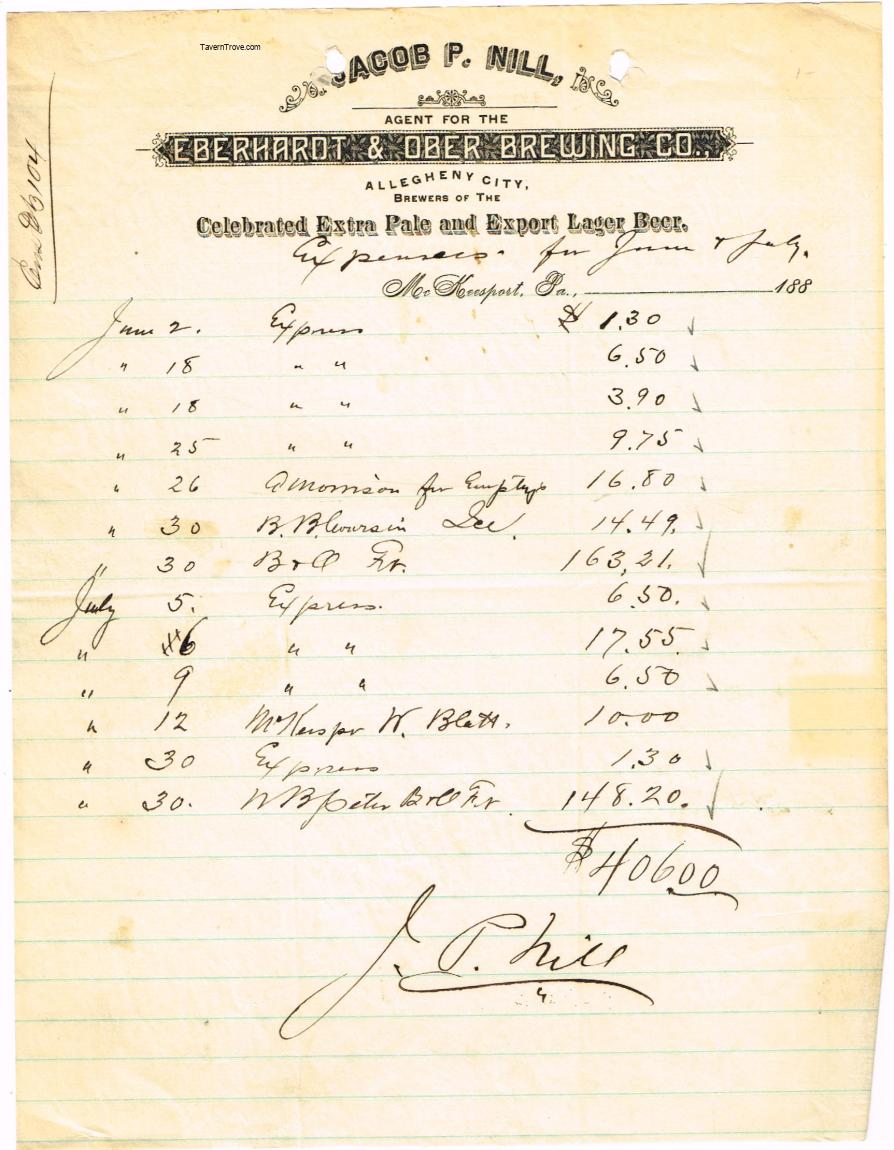 TavernTrove.com
JACOB P. NILL,
AGENT FOR THE
EBERHARDT & OBER BREWING CO.,
ALLEGHENY CITY,
BREWERS OF THE
Celebrated Extra Pale and Export Lager Beer.
Expenses for June & July.
McKeesport, Pa., 188
June 2. Express $ 1.30
" 18 " " 6.50
" 18 " " 3.90
" 25 " " 9.75
" 26 Morrison for Emptys 16.80
" 30 B. Ice. 14.49.
" 30 B & O Fr. 163,21.
July 5. Express. 6.50.
" 6 " " 17.55.
" 9 " " 6.50
" 12 W. Blatt. 10.00
" 30 Express 1.30
" 30. B & O Fr. 148.20.
$406.00
J. P. Nill
104